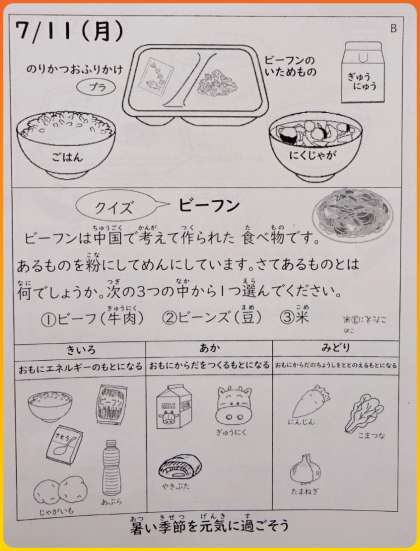 7/11(月)
B
のりかつおふりかけ
プラ
ビーフンの
いためもの
ぎゅう
にゅう
ごはん
にくじゃが
クイズ
ビーフン
ビーフンは中国で考えて作られた 食べ物です。
ちゅうごく かんが つく た もの
あるものを粉にしてめんにしています。さてあるものとは
こな
何でしょうか。次の3つの中から1つ選んでください。
なに つぎ なか えら
①ビーフ(牛肉) ②ビーンズ(豆) ③米
ぎゅうにく まめ こめ
きいろ
おもにエネルギーのもとになる
あか
おもにからだをつくるもとになる
みどり
おもにからだのちょうしをととのえるもとになる
ビーフン
さとう
じゃがいも
あぶら
ぎゅうにく
やきぶた
にんじん
こまつな
たまねぎ
暑い季節を元気に過ごそう
あつ きせつ げんき す